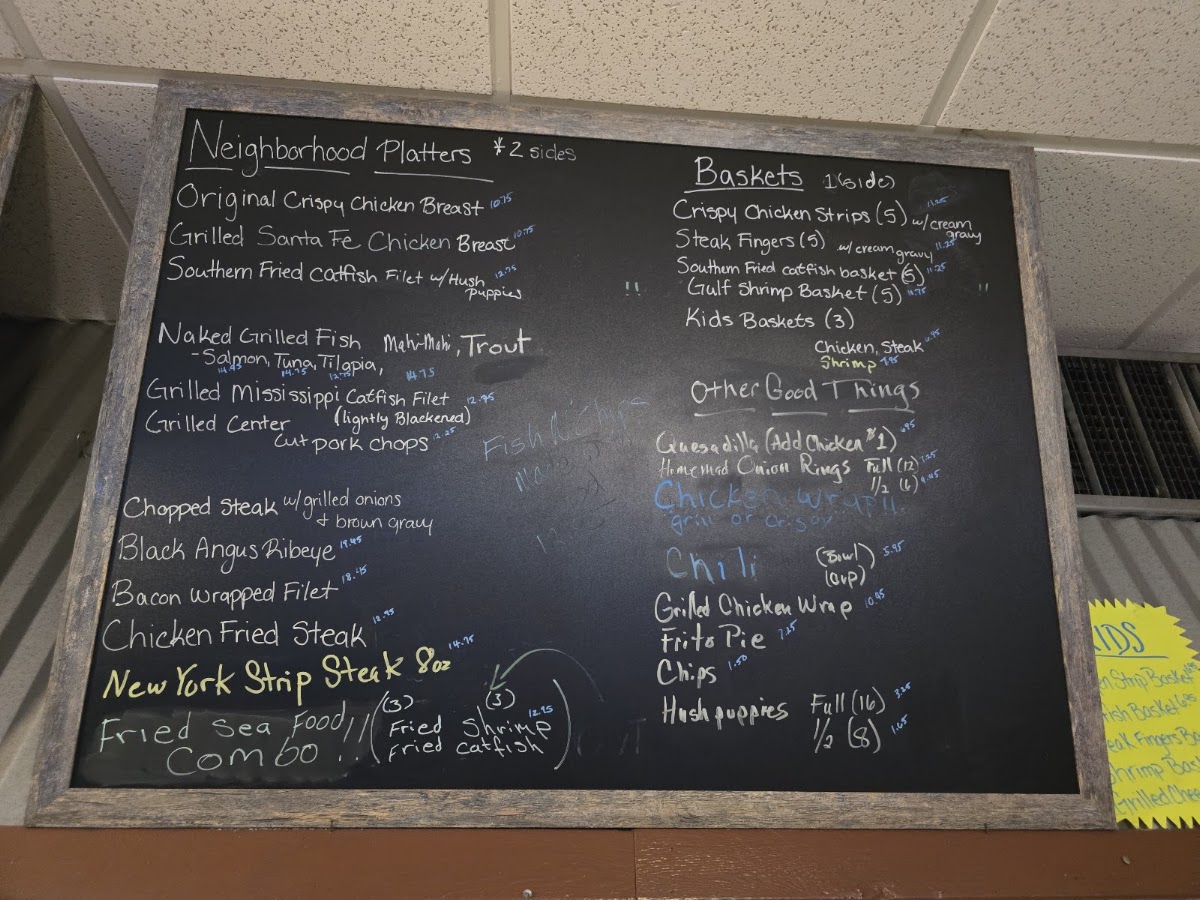 Neighborhood Platters * 2 sides
Original Crispy Chicken Breast 10.75
Grilled Santa Fe Chicken Breast 10.75
Southern Fried Catfish Filet w/Hush 12.75
puppies
Naked Grilled Fish Mahi-Mahi, Trout
- Salmon, Tuna, Tilapia,
14.95 14.75 12.75 14.75
Grilled Mississippi Catfish Filet 12.95
(lightly Blackened)
Grilled Center
Cut pork chops 12.25
Chopped Steak w/grilled onions
+ brown gravy
Black Angus Ribeye 19.45
Bacon wrapped Filet 18.45
Chicken Fried Steak 12.95
New York Strip Steak 8oz 14.75
Fried Sea Food!!
Combo!!
(3) (3)
Fried Shrimp 12.95
Fried catfish
Fish n' Chips
Baskets 1(side)
Crispy Chicken Strips (5) w/cream 11.25
gravy
Steak Fingers (5) w/cream gravy 11.25
Southern Fried catfish basket (5) 11.25
Gulf Shrimp Basket (5) 11.75
Kids Baskets (3)
Chicken, Steak 6.95
Shrimp 7.95
Other Good Things
Quesadilla (Add Chicken $1) 6.95
Homemad Onion Rings Full (12) 7.25
1/2 (6) 4.45
Chicken Wrap!!
grill or crispy
Chili (Bowl) 5.95
(Cup)
Grilled Chicken Wrap 10.45
Frito Pie 7.25
Chips 1.50
Hush puppies Full (16) 3.25
1/2 (8) 1.65
KIDS
Strip Basket
Fish Basket
eak Fingers Ba
hrimp Bas
Grilled Chee